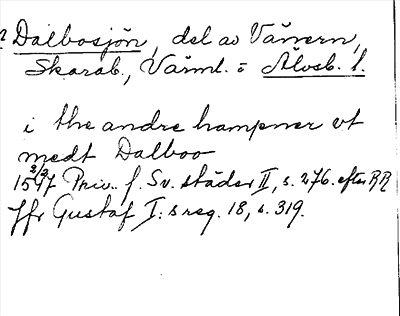 Dalbosjön, del av Vänern,
Skarab., Värml. o Älvsb. l.
i the andre hampner vt
medt Dalboo
2/3
1547 Priv. f. Sv. städer II, s. 276. efter RR
Jfr Gustaf I:s reg. 18, s. 319.